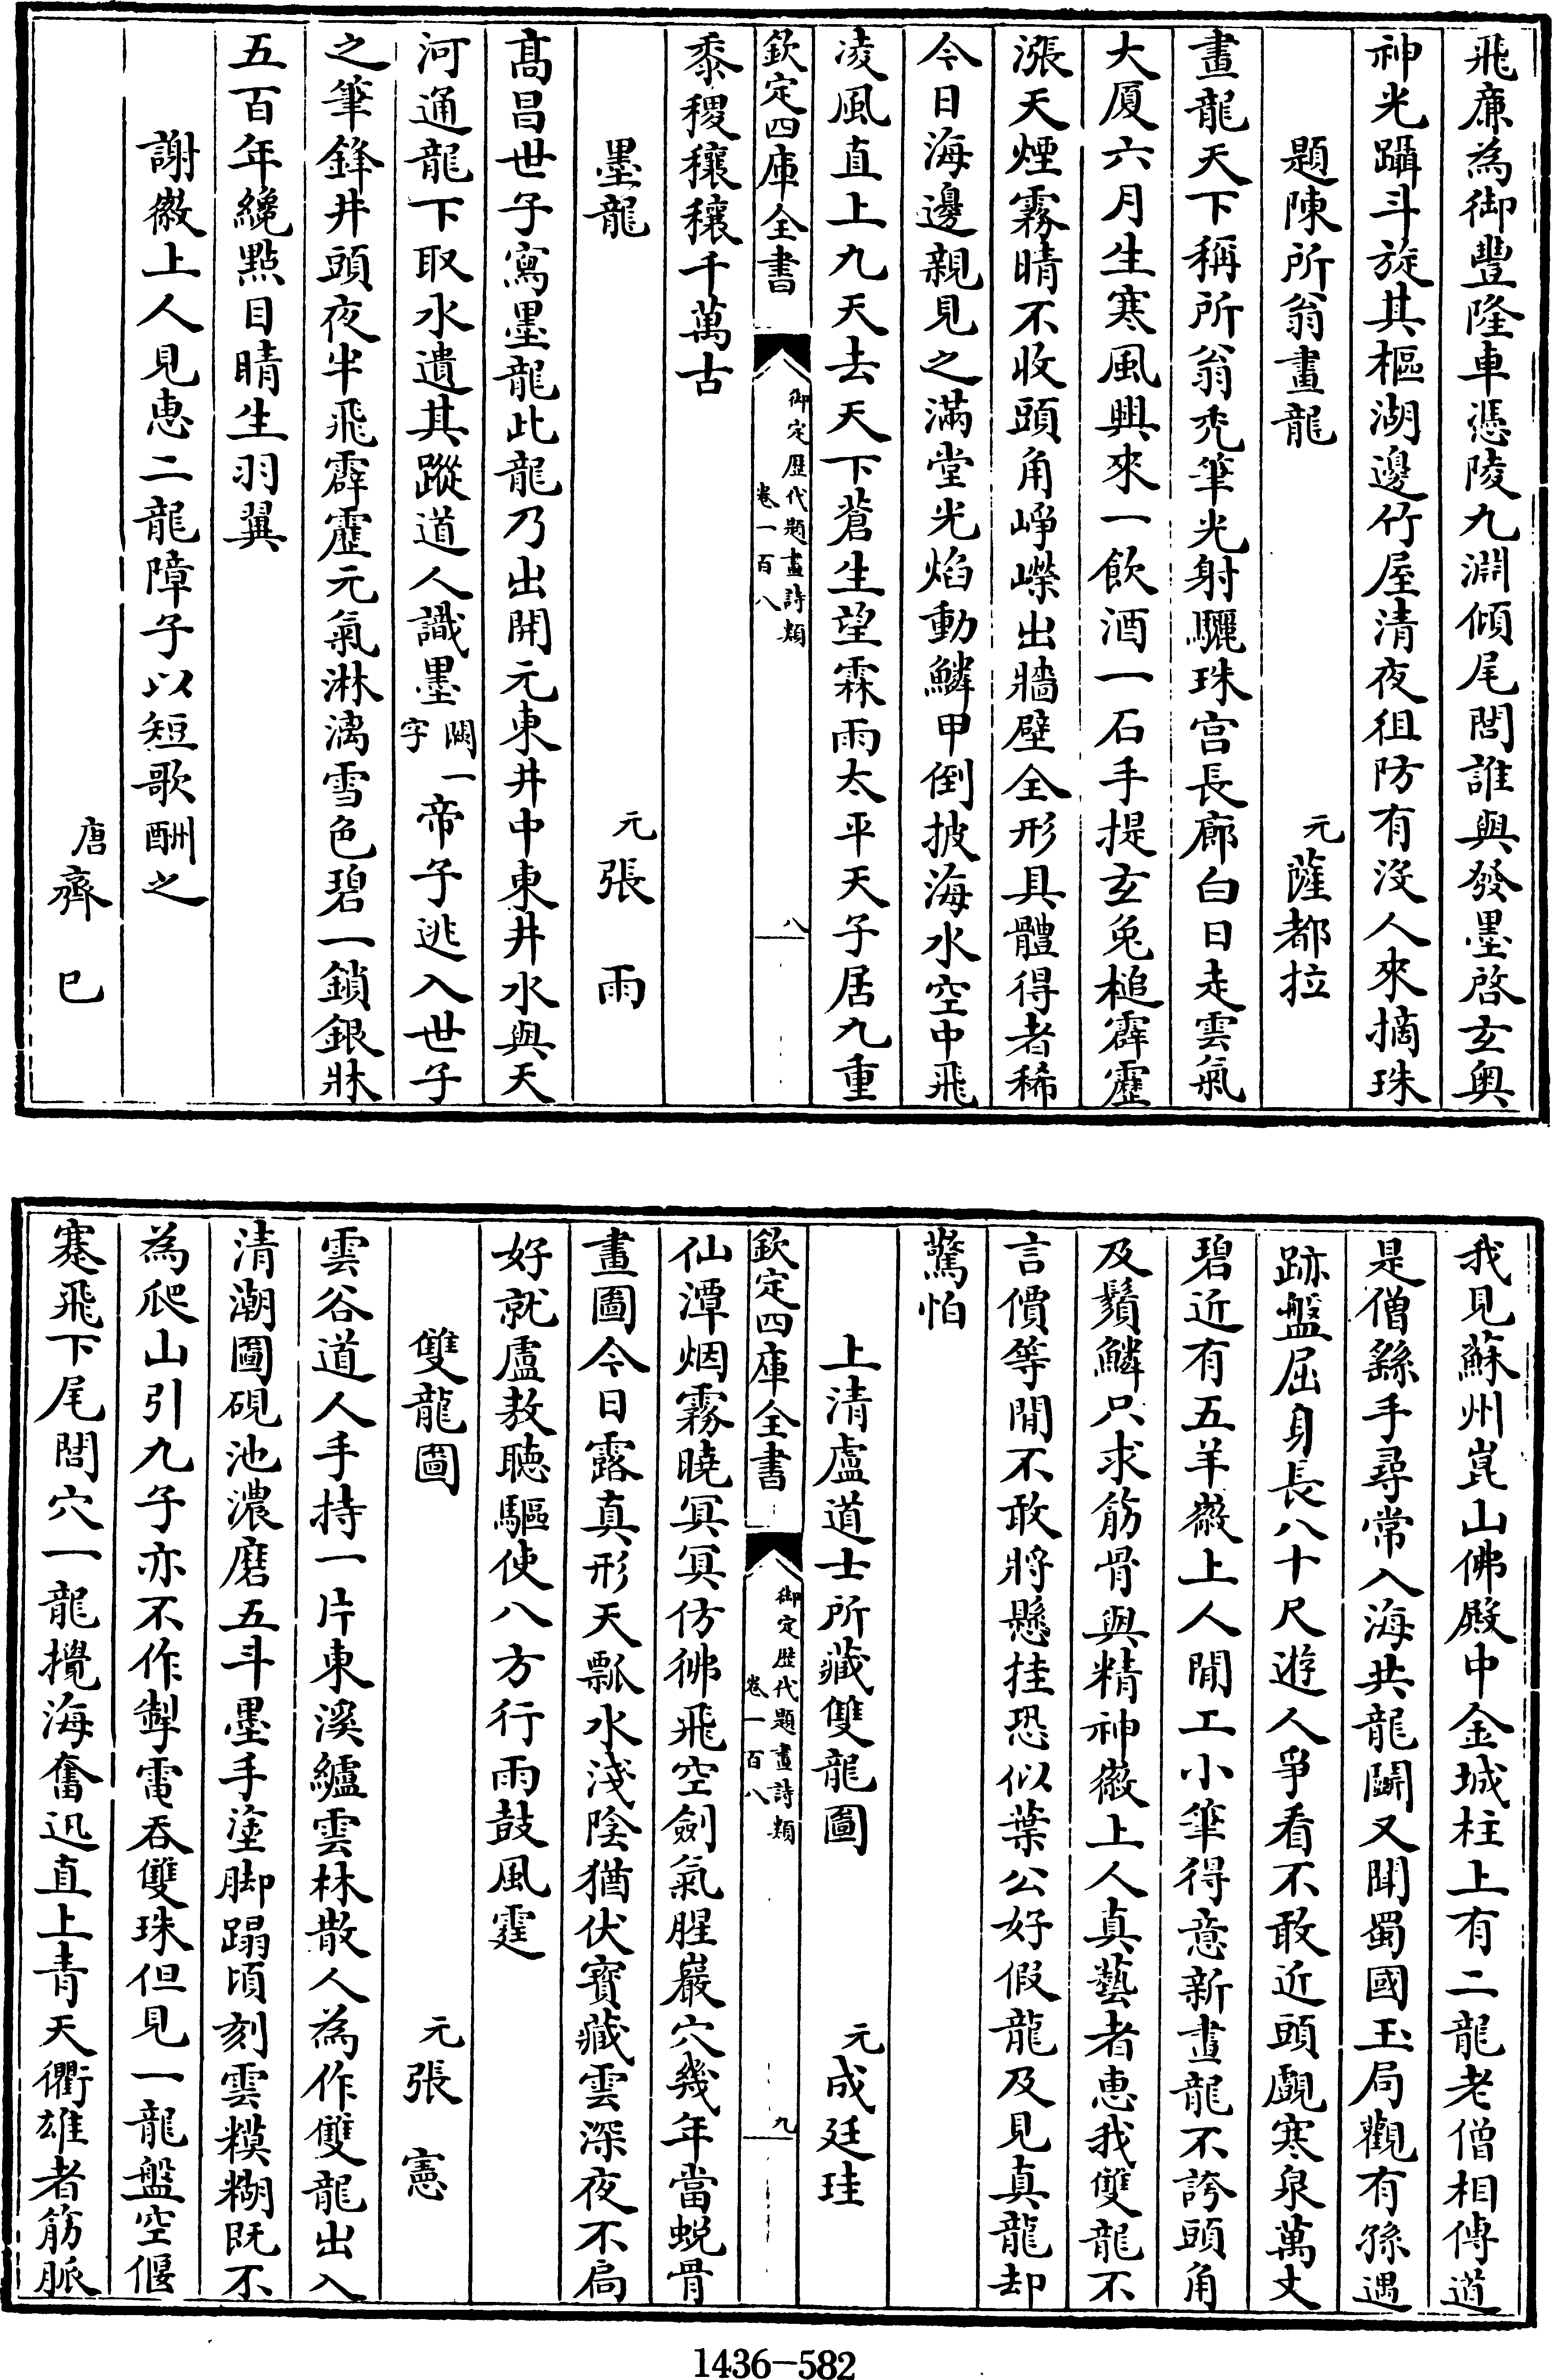 飛廉為御豐隆車憑陵九淵傾尾閭誰與發墨啓玄奥
神光躡斗旋其樞湖邊竹屋清夜徂防有沒人來摘珠
題陳所翁畫龍
元薩都拉
畫龍天下稱所翁禿筆光射驪珠宫長廊白日走雲氣
大厦六月生寒風興來一飲酒一石手提玄兎槌霹靂
漲天煙霧晴不收頭角崢嶸出牆壁全形具體得者稀
今日海邊親見之滿堂光焰動鱗甲倒披海水空中飛
凌風直上九天去天下蒼生望霖雨太平天子居九重
欽定四庫全書
御定歷代題畫詩類
卷一百八
八
黍稷穰穰千萬古
墨龍
元張雨
髙昌世子寫墨龍此龍乃出開元東井中東井水與天
河通龍下取水遺其蹤道人識墨闕一字帝子逃入世子
之筆鋒井頭夜半飛霹靂元氣淋漓雪色碧一鎖銀牀
五百年纔點目睛生羽翼
謝徽上人見恵二龍障子以短歌酬之
唐齊已
我見蘇州崑山佛殿中金城柱上有二龍老僧相傳道
是僧繇手尋常入海共龍鬬又聞蜀國玉局觀有孫遇
跡盤屈身長八十尺遊人爭看不敢近頭覷寒泉萬丈
碧近有五羊徽上人閒工小筆得意新畫龍不誇頭角
及鬚鱗只求筋骨與精神徽上人真藝者恵我雙龍不
言價等閒不敢將懸挂恐似葉公好假龍及見真龍却
驚怕
上清盧道士所藏雙龍圖
元成廷珪
欽定四庫全書
御定歷代題畫詩類
卷一百八
九
仙潭烟霧曉冥冥仿彿飛空劍氣腥巖穴幾年當蜕骨
畫圖今日露真形天瓢水淺陰猶伏寳藏雲深夜不扃
好就盧敖聽驅使八方行雨鼓風霆
雙龍圖
元張憲
雲谷道人手持一片東溪纑雲林散人為作雙龍出入
清潮圖硯池濃磨五斗墨手塗脚蹋頃刻雲糢糊既不
為爬山引九子亦不作掣電吞雙珠但見一龍盤空偃
蹇飛下尾閭穴一龍攪海奮迅直上青天衢雄者筋脈
1436-582